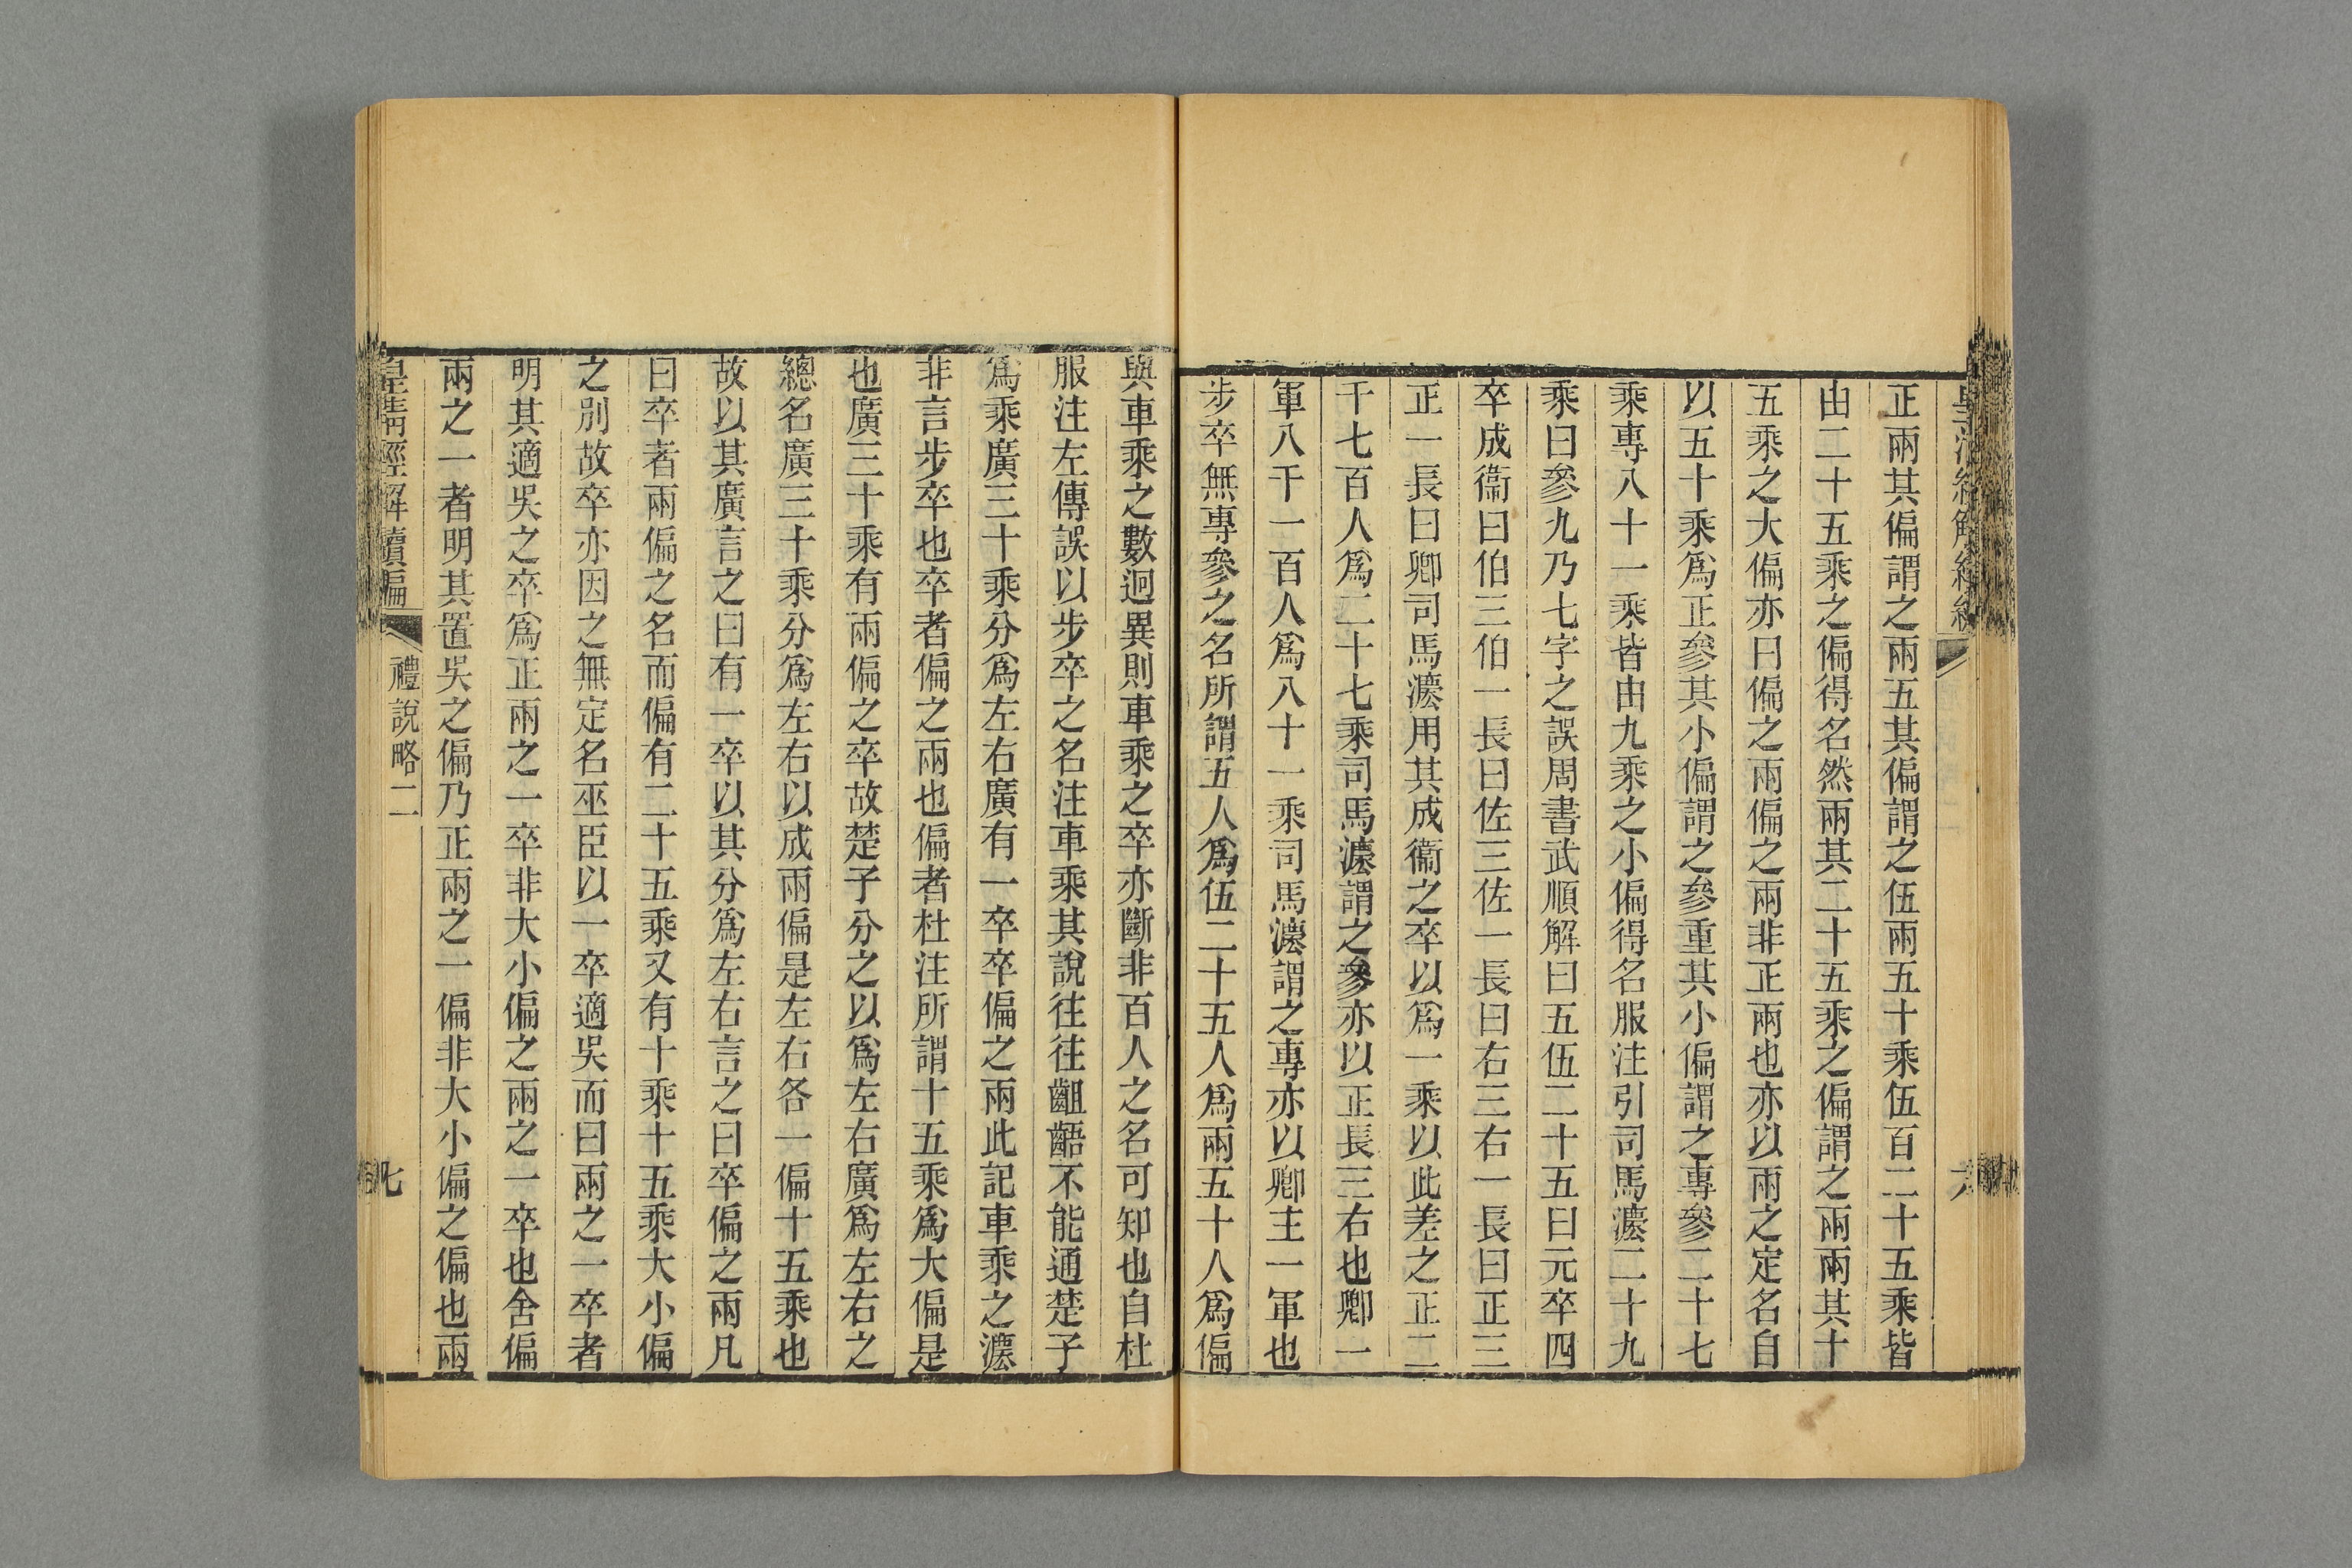 正兩其偏謂之兩五其偏謂之伍兩五十乘伍百二十五乘皆
由二十五乘之偏得名然兩其二十五乘之偏謂之兩兩其十
五乘之大偏亦曰偏之兩偏之兩非正兩也亦以兩之定名自
以五十乘爲正參其小偏謂之參重其小偏謂之專參二十七
乘專八十一乘皆由九乘之小偏得名服注引司馬灋二十九
乘曰參九乃七字之誤周書武順解曰五伍二十五曰元卒四
卒成衞曰伯三伯一長曰佐三佐一長曰右三右一長曰正三
正一長曰卿司馬灋用其成衞之卒以爲一乘以此差之正二
千七百人爲二十七乘司馬灋謂之參亦以正長三右也卿一
軍八千一百人爲八十一乘司馬灋謂之專亦以卿主一軍也
步卒無專參之名所謂五人爲伍二十五人爲兩五十人爲偏
與車乘之數迥異則車乘之卒亦斷非百人之名可知也自杜
服注左傳誤以步卒之名注車乘其說往往齟齬不能通楚子
爲乘廣三十乘分爲左右廣有一卒卒偏之兩此記車乘之灋
非言步卒也卒者偏之兩也偏者杜注所謂十五乘爲大偏是
也廣三十乘有兩偏之卒故楚子分之以爲左右廣爲左右之
總名廣三十乘分爲左右以成兩偏是左右各一偏十五乘也
故以其廣言之曰有一卒以其分爲左右言之曰卒偏之兩凡
曰卒者兩偏之名而偏有二十五乘又有十乘十五乘大小偏
之別故卒亦因之無定名巫臣以一卒適吳而曰兩之一卒者
明其適吳之卒爲正兩之一卒非大小偏之兩之一卒也舍偏
兩之一者明其置吳之偏乃正兩之一偏非大小偏之偏也兩
皇清經解續編 禮說略二 七